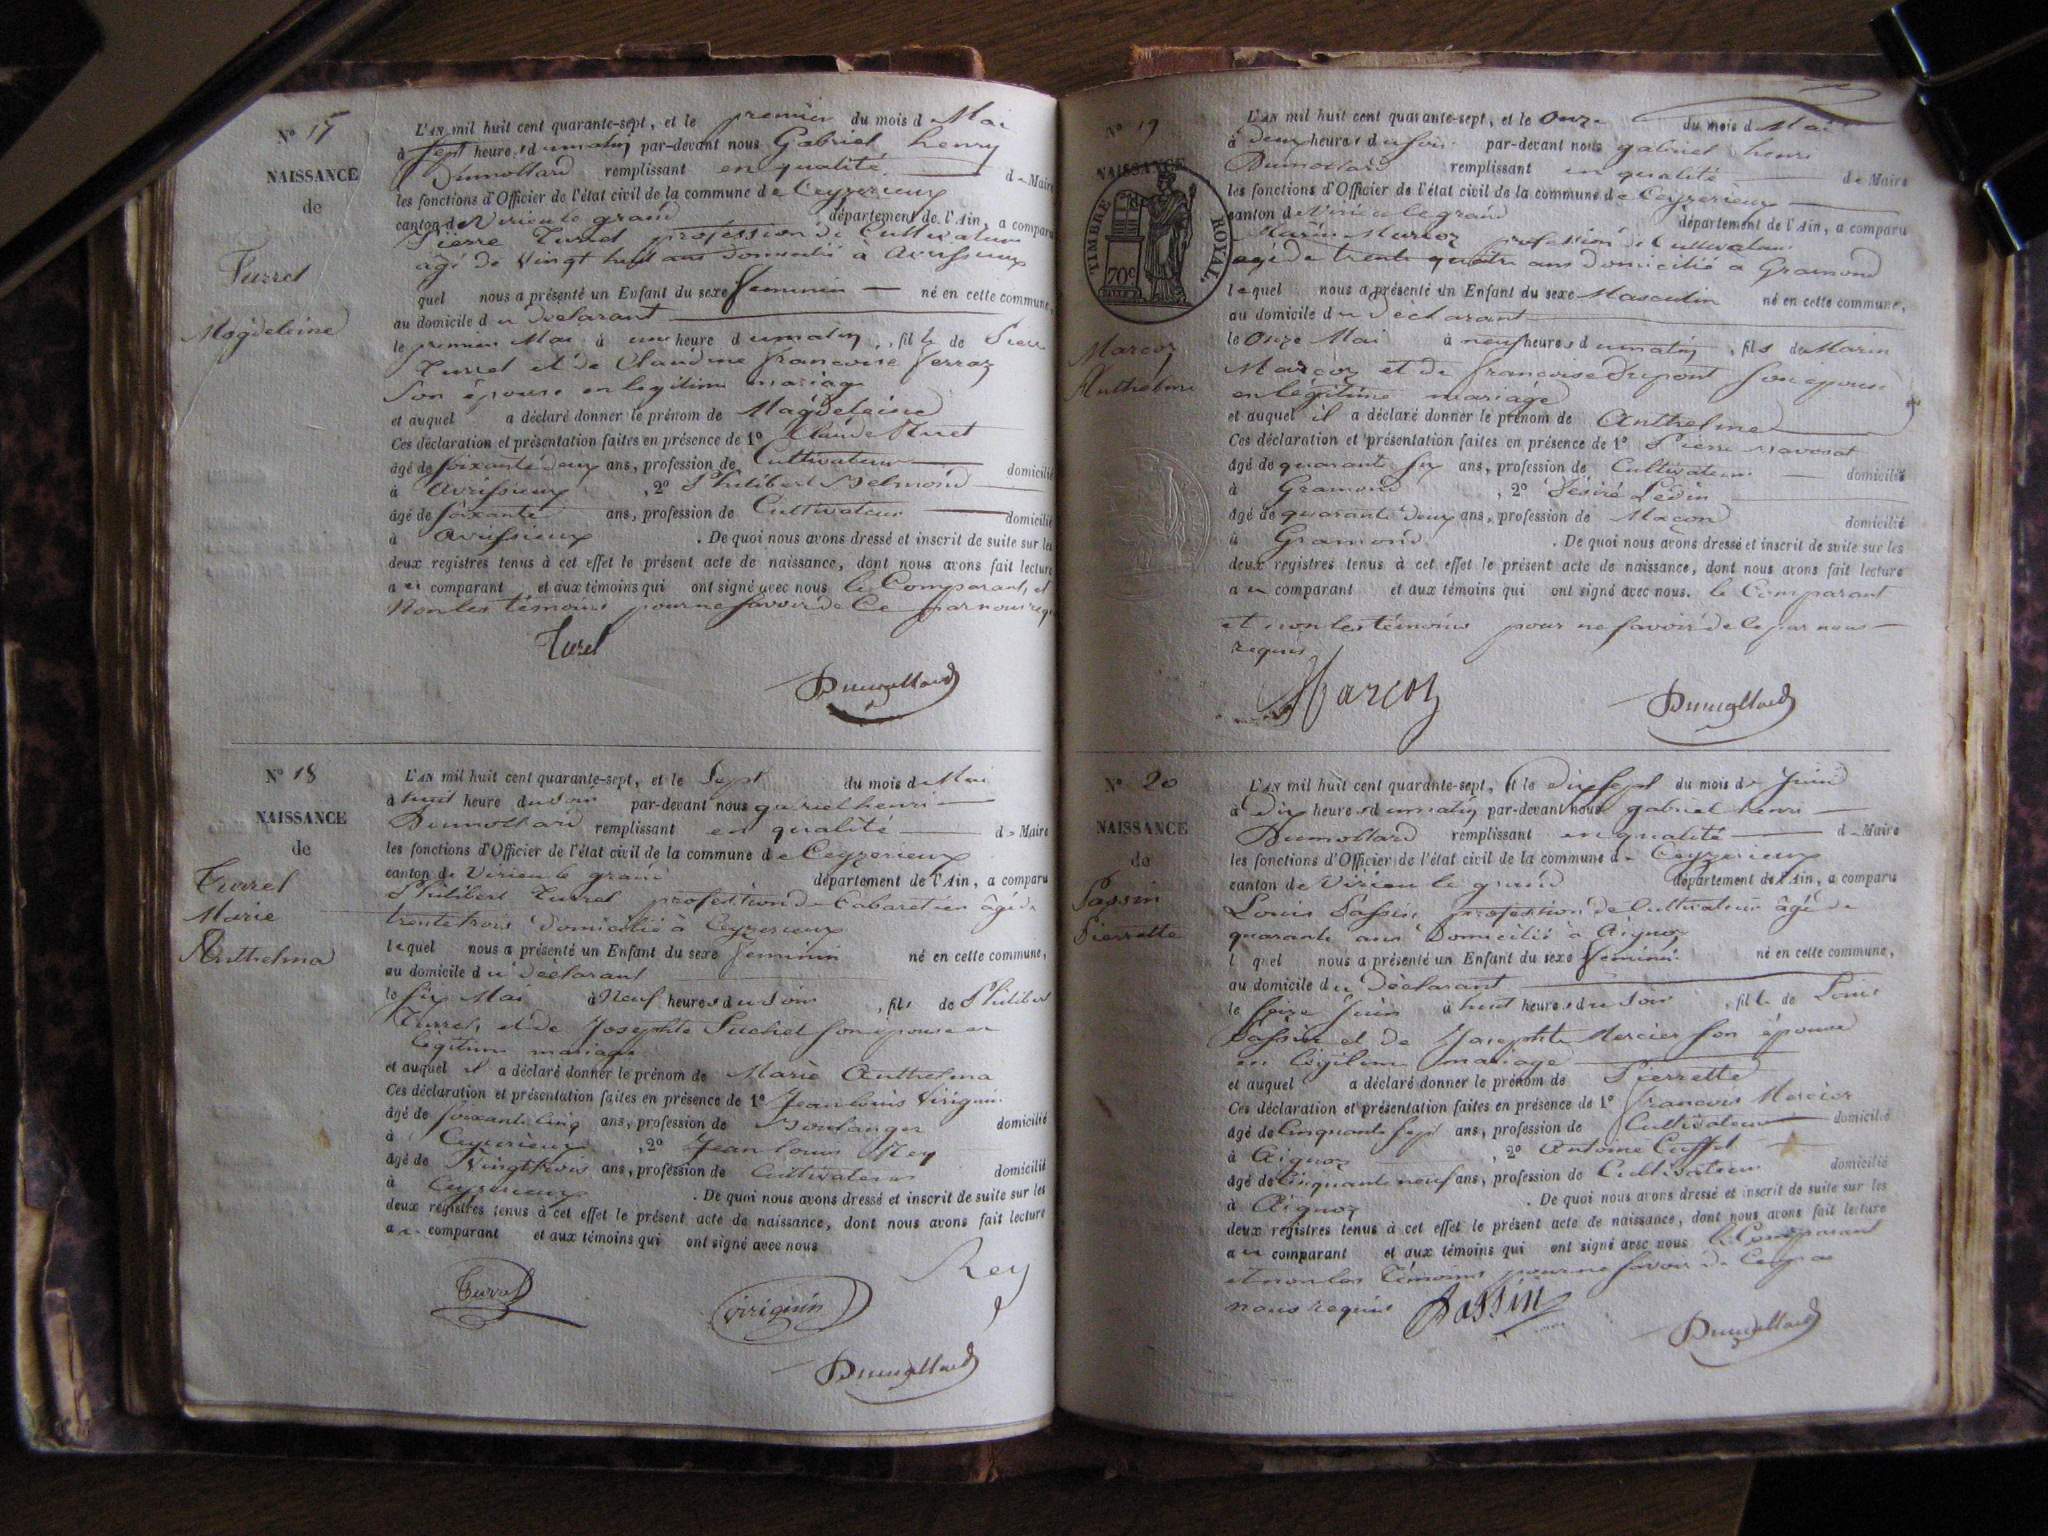 Nº 17
NAISSANCE
de
Turrel
Magdeleine
L'AN mil huit cent quarante-sept, et le premier du mois d Mai
à sept heures du matin par-devant nous Gabriel henry
Dumollard remplissant en qualité de Maire
les fonctions d'Officier de l'état civil de la commune de Ceyzerieux
canton de Virieu le grand département de l'Ain, a comparu
Pierre Turrel profession de Cultivateur
âgé de vingt huit ans domicilié à Avrissieux
quel nous a présenté un Enfant du sexe feminin né en cette commune,
au domicile du déclarant
le premier Mai à une heure du matin, fille de Pierre
Turrel et de Claudine françoise ferraz
Son épouse en legitime mariage
et auquel a déclaré donner le prénom de Magdeleine
Ces déclaration et présentation faites en présence de 1º Claude
âgé de soixante deux ans, profession de Cultivateur domicilié
à Avrissieux, 2º Philibert Belmond
âgé de soixante ans, profession de Cultivateur domicilié
à Avrissieux. De quoi nous avons dressé et inscrit de suite sur les
deux registres tenus à cet effet le présent acte de naissance, dont nous avons fait lecture
au comparant et aux témoins qui ont signé avec nous le Comparant, et
Non les témoins pour ne savoir de Ce par nous req
Turel
Dumollard
Nº 18
NAISSANCE
de
Turrel
Marie
Anthelma
L'AN mil huit cent quarante-sept, et le Sept du mois de Mai
à huit heure du soir par-devant nous gabriel henri
Dumollard remplissant en qualité de Maire
les fonctions d'Officier de l'état civil de la commune de Ceyzerieux
canton de Virieu le grand département de l'Ain, a comparu
Philibert Turrel profession de Cabaretier âgé de
trente trois domicilié à Ceyzerieux
lequel nous a présenté un Enfant du sexe feminin né en cette commune,
au domicile du déclarant
le six Mai à Neuf heures du soir, fils de Philibert
Turrel, et de Josephte Puchel son épouse en
légitime mariage
et auquel il a déclaré donner le prénom de Marie Anthelma
Ces déclaration et présentation faites en présence de 1º Jean louis Virignin
âgé de soixante cinq ans, profession de Boulanger domicilié
à Ceyzerieux, 2º Jean louis Rey
âgé de Vingt trois ans, profession de Cultivateur domicilié
à Ceyzerieux. De quoi nous avons dressé et inscrit de suite sur les
deux registres tenus à cet effet le présent acte de naissance, dont nous avons fait lecture
au comparant et aux témoins qui ont signé avec nous
Rey
Turrel
Virignin
Dumollard
Nº 19
NAISSANCE
TIMBRE ROYAL
70c
Marcoz
Anthelme
L'AN mil huit cent quarante-sept, et le Onze du mois d Mai
à deux heures du soir par-devant nous gabriel henri
Dumollard remplissant en qualité de Maire
les fonctions d'Officier de l'état civil de la commune de Ceyzerieux
canton de Virieu le grand département de l'Ain, a comparu
Marin Marcoz profession de Cultivateur
agé de trente quatre ans domicilié à Gramond
lequel nous a présenté un Enfant du sexe Masculin né en cette commune,
au domicile du déclarant
le Onze Mai à neuf heures du matin, fils de Marin
Marcoz et de françoise Dupont son épouse
en légitime mariage
et auquel il a déclaré donner le prénom de Anthelme
Ces déclaration et présentation faites en présence de 1º Pierre
âgé de quarante six ans, profession de Cultivateur domicilié
à Gramond, 2º Désiré
âgé de quarante deux ans, profession de Maçon domicilié
à Gramond. De quoi nous avons dressé et inscrit de suite sur les
deux registres tenus à cet effet le présent acte de naissance, dont nous avons fait lecture
au comparant et aux témoins qui ont signé avec nous. le Comparant
et non les témoins pour ne savoir de le par nous
requis
Marcoz
Dumollard
Nº 20
NAISSANCE
de
Passin
Pierrette
L'AN mil huit cent quarante-sept, et le Dix Sept du mois de Juin
à Dix heures du matin par-devant nous gabriel henri
Dumollard remplissant en qualité de Maire
les fonctions d'Officier de l'état civil de la commune de Ceyzerieux
canton de Virieu le grand département de l'Ain, a comparu
Louis Passin profession de Cultivateur âgé de
quarante ans Domicilié à Aignoz
l quel nous a présenté un Enfant du sexe feminin né en cette commune,
au domicile du Déclarant
le seize Juin à huit heures du soir, fille de Louis
Passin et de Josephte Mercier son épouse
en légitime mariage
et auquel a déclaré donner le prénom de Pierrette
Ces déclaration et présentation faites en présence de 1º françois Mercier
âgé de Cinquante sept ans, profession de Cultivateur domicilié
à Aignoz, 2º Antoine Cuffet
âgé de Cinquante neuf ans, profession de Cultivateur domicilié
à Aignoz. De quoi nous avons dressé et inscrit de suite sur les
deux registres tenus à cet effet le présent acte de naissance, dont nous avons fait lecture
au comparant et aux témoins qui ont signé avec nous le Comparant
et non les Témoins pour ne savoir de Ce par
nous requis
Passin
Dumollard